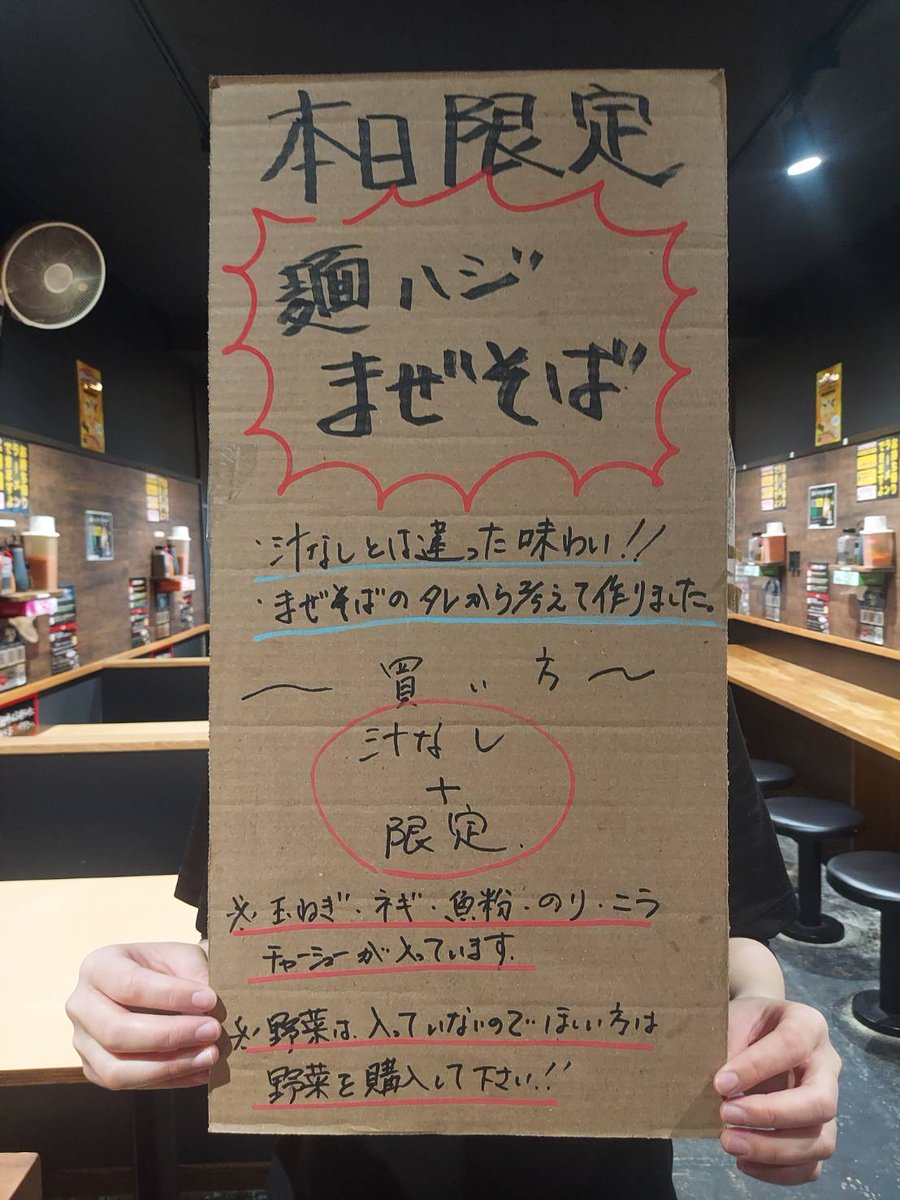 本日限定
麺ハジ
まぜそば
・汁なしとは違った味わい!!
・まぜそばのタレから考えて作りました。
〜買い方〜
汁なし
+
限定.
※玉ねぎ・ネギ・魚粉・のり・ニラ
チャーシューが入っています.
※野菜は入っていないのでほしい方は
野菜を購入して下さい!!